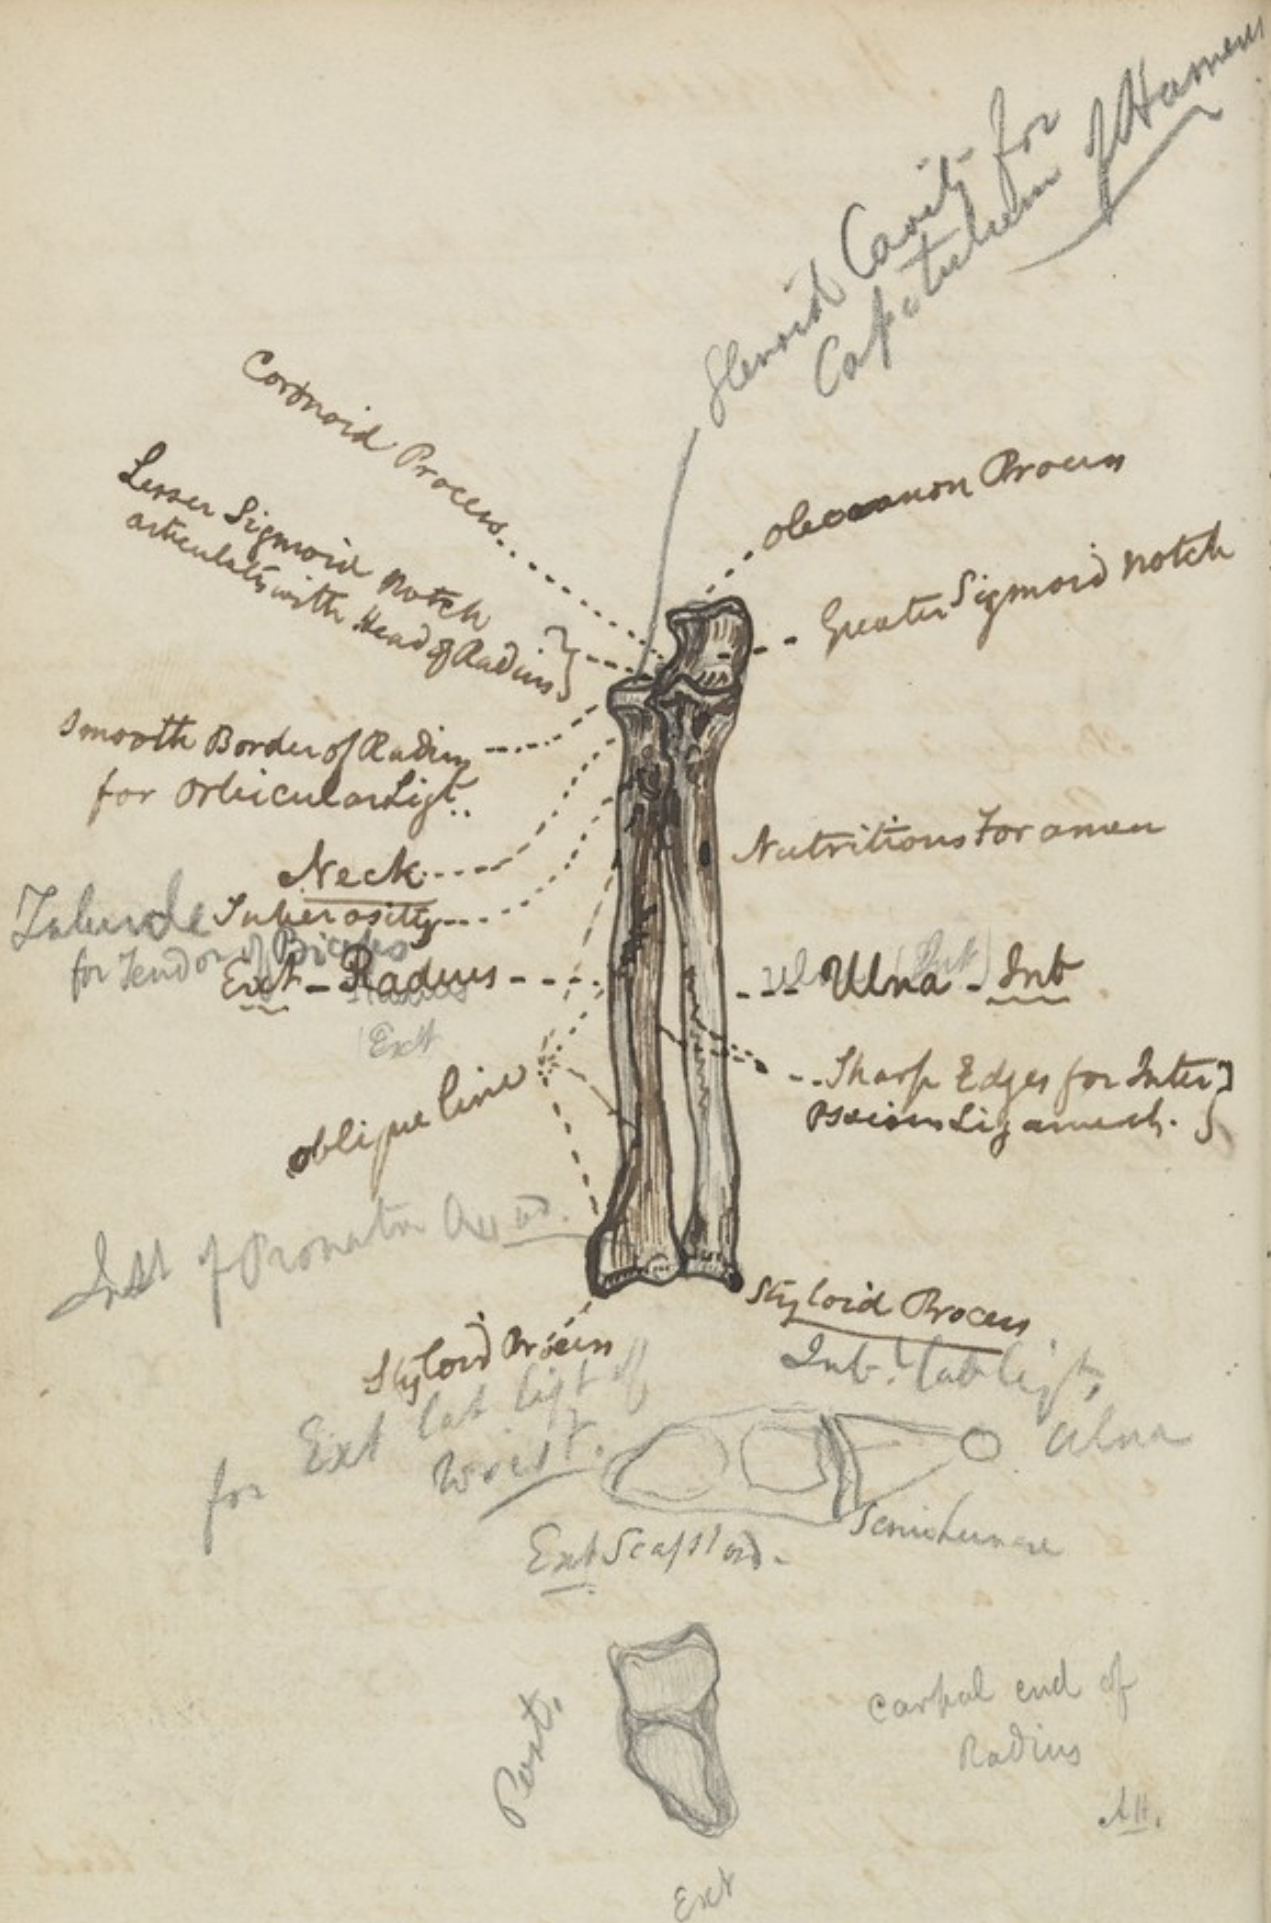 Glenoid Cavity for
Capitulum of Humerus
Coronoid Process
Lesser Sigmoid notch
articulates with Head of Radius
olecranon Process
Greater Sigmoid notch
Smooth Border of Radius
for Orbicular Ligt..
Nutritious Foramen
Neck
Tubercle Tuberosity
for Tendon of Biceps
Ext - Radius
Radius
Ext
Ulna - Int
Oblique line
Sharp Edges for Inter
osseious Ligament.
Inst of Pronator Quad.
Styloid Process
Styloid Process
Int. lat ligt,
for Ext lat ligt of
wrist.
Ulna
Semilunare
Ext Scaphoid.
Post.
Carpal end of
Radius
Ext